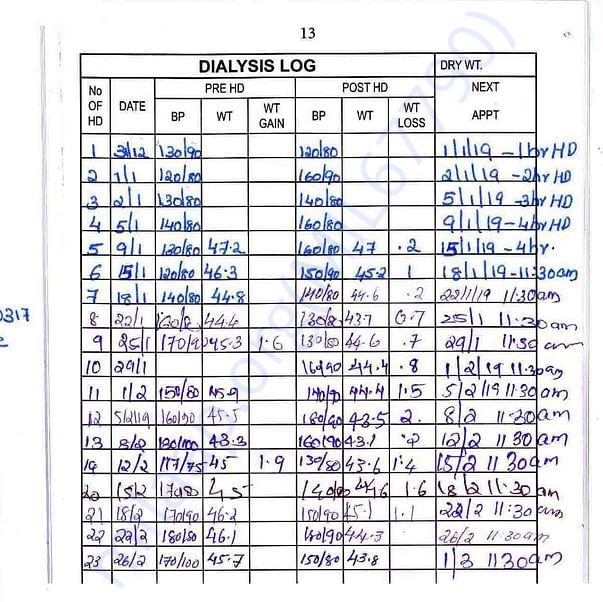 13
DIALYSIS LOG DRY WT.
No OF HD DATE PRE HD POST HD NEXT APPT
BP WT WT GAIN BP WT WT LOSS
1 31/12 130/90 120/80 1/1/19 - 1hr HD
2 1/1 120/80 160/90 2/1/19 - 2hr HD
3 2/1 130/80 140/80 5/1/19 - 3hr HD
4 5/1 140/80 160/80 9/1/19 - 4hr HD
5 9/1 130/80 47.2 160/80 47 .2 15/1/19 - 4hr.
6 15/1 120/80 46.3 150/90 45.2 1 18/1/19 - 11:30am
7 18/1 140/80 44.8 140/80 44.6 .2 22/1/19 11:30am
8 22/1 44.4 43.7 0.7 25/1 11:30am
9 25/1 45.3 1.6 130/80 44.6 .7 29/1 11:30am
10 29/1 44.4 .8 1/2/19 11:30am
11 1/2 150/80 45.9 140/90 44.4 1.5 5/2/19 11:30am
12 5/2/19 160/90 45.5 180/90 43.5 2. 8/2 11:30am
13 8/2 43.3 160/90 43.1 .2 12/2 11 30am
14 12/2 117/75 45 1.9 130/80 43.6 1.4 15/2 11 30am
15/2 170/80 45 1.6 18/2 11:30am
21 18/2 170/90 46.2 150/90 45.1 1.1 22/2 11:30am
22 22/2 180/80 46.1 44.3 26/2 11:30am
23 26/2 170/100 45.7 150/80 43.8 1/3 11:30am
0317